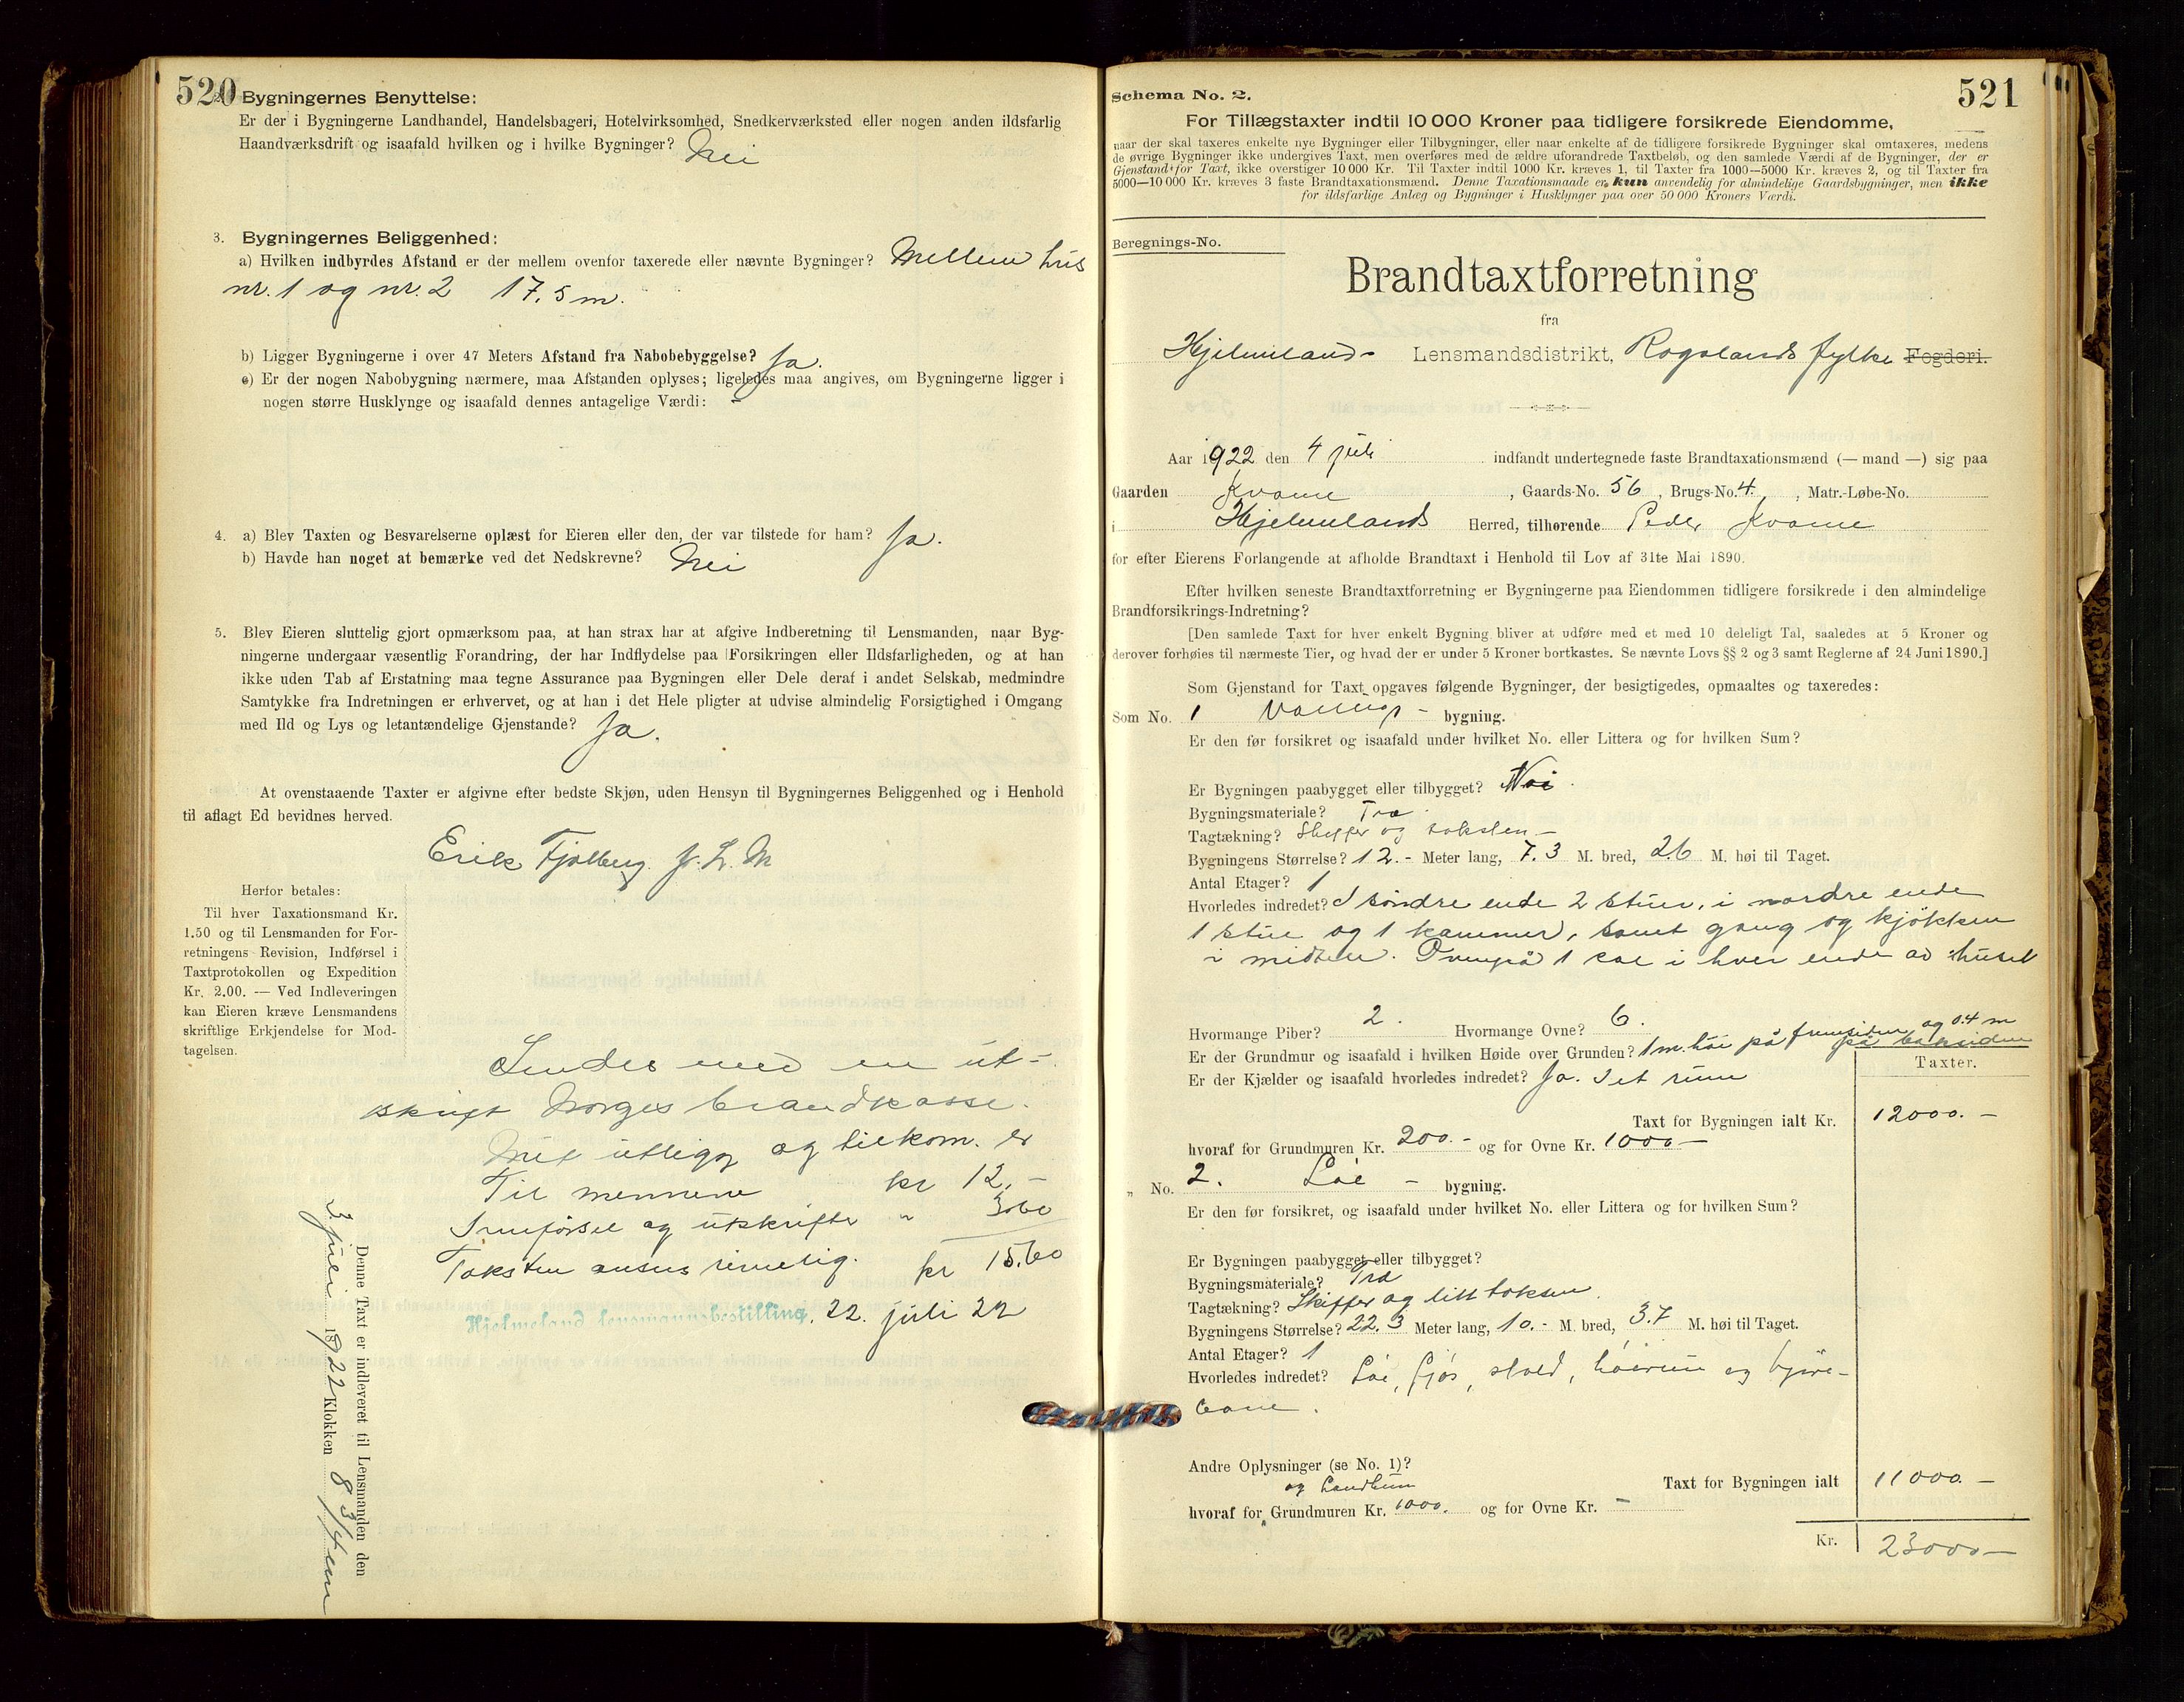 520
2. Bygningernes Benyttelse:
Er der i Bygningerne Landhandel, Handelsbageri, Hotelvirksomhed, Snedkerværksted eller nogen anden ildsfarlig
Haandværksdrift og isaafald hvilken og i hvilke Bygninger? Nei
3. Bygningernes Beliggenhed:
a) Hvilken indbyrdes Afstand er der mellem ovenfor taxerede eller nævnte Bygninger? Mellem hus
nr. 1 og nr. 2 17.5 m.
b) Ligger Bygningerne i over 47 Meters Afstand fra Nabobebyggelse? Ja.
c) Er der nogen Nabobygning nærmere, maa Afstanden oplyses; ligeledes maa angives, om Bygningerne ligger i
nogen større Husklynge og isaafald dennes antagelige Værdi: –
4. a) Blev Taxten og Besvarelserne oplæst for Eieren eller den, der var tilstede for ham? Ja.
b) Havde han noget at bemærke ved det Nedskrevne? Nei
5. Blev Eieren sluttelig gjort opmærksom paa, at han strax har at afgive Indberetning til Lensmanden, naar Byg-
ningerne undergaar væsentlig Forandring, der har Indflydelse paa Forsikringen eller Ildsfarligheden, og at han
ikke uden Tab af Erstatning maa tegne Assurance paa Bygningen eller Dele deraf i andet Selskab, medmindre
Samtykke fra Indretningen er erhvervet, og at han i det Hele pligter at udvise almindelig Forsigtighed i Omgang
med Ild og Lys og letantændelige Gjenstande? Ja.
At ovenstaaende Taxter er afgivne efter bedste Skjøn, uden Hensyn til Bygningernes Beliggenhed og i Henhold
til aflagt Ed bevidnes herved.
Erik Fjølberg
Herfor betales:
Til hver Taxationsmand Kr.
1.50 og til Lensmanden for For-
retningens Revision, Indførsel i
Taxtprotokollen og Expedition
Kr. 2.00. — Ved Indleveringen
kan Eieren kræve Lensmandens
skriftlige Erkjendelse for Mod-
tagelsen.
Sendes med en ut-
skrift Norges brandkasse.
Mit utlegg og tilkom. er
Til mennene kr 12.-
Innførsel og utskrifter " 3.60
Taksten ansees rimelig. kr 15.60
Hjelmeland lensmannsbestilling, 22. juli 22
Denne Taxt er indleveret til Lensmanden den
3 juli 1922 Klokken 8
521
Schema No. 2.
For Tillægstaxter indtil 10 000 Kroner paa tidligere forsikrede Eiendomme,
naar der skal taxeres enkelte nye Bygninger eller Tilbygninger, eller naar enkelte af de tidligere forsikrede Bygninger skal omtaxeres, medens
de øvrige Bygninger ikke undergives Taxt, men overføres med de ældre uforandrede Taxtbeløb, og den samlede Værdi af de Bygninger, der er
Gjenstand for Taxt, ikke overstiger 10 000 Kr. Til Taxter indtil 1000 Kr. kræves 1, til Taxter fra 1000—5000 Kr. kræves 2, og til Taxter fra
5000—10 000 Kr. kræves 3 faste Brandtaxationsmænd. Denne Taxationsmaade er kun anvendelig for almindelige Gaardsbygninger, men ikke
for ildsfarlige Anlæg og Bygninger i Husklynger paa over 50 000 Kroners Værdi.
Beregnings-No.
Brandtaxtforretning
fra
Hjelmelands Lensmandsdistrikt, Rogalands fylke Fogderi.
Aar 1922 den 4 juli indfandt undertegnede faste Brandtaxationsmænd (— mand —) sig paa
Gaarden Kvame, Gaards-No. 56, Brugs-No. 4, Matr.-Løbe-No.
i Hjelmelands Herred, tilhørende Peder Kvame
for efter Eierens Forlangende at afholde Brandtaxt i Henhold til Lov af 31te Mai 1890.
Efter hvilken seneste Brandtaxtforretning er Bygningerne paa Eiendommen tidligere forsikrede i den almindelige
Brandforsikrings-Indretning?
[Den samlede Taxt for hver enkelt Bygning bliver at udføre med et med 10 deleligt Tal, saaledes at 5 Kroner og
derover forhøies til nærmeste Tier, og hvad der er under 5 Kroner bortkastes. Se nævnte Lovs §§ 2 og 3 samt Reglerne af 24 Juni 1890.]
Som Gjenstand for Taxt opgaves følgende Bygninger, der besigtigedes, opmaaltes og taxeredes:
Som No. 1 Vånings- bygning.
Er den før forsikret og isaafald under hvilket No. eller Littera og for hvilken Sum?
Er Bygningen paabygget eller tilbygget? Nei.
Bygningsmateriale? Træ
Tagtækning? Skiffer og taksten -
Bygningens Størrelse? 12.- Meter lang, 7.3 M. bred, 2.6 M. høi til Taget.
Antal Etager? 1
Hvorledes indredet? I søndre ende 2 stuer, i nordre ende
1 stue og 1 kammer, samt gang og kjøkken
i midten. Ovenpå 1 sal i hver ende av huset
Hvormange Piber? 2. Hvormange Ovne? 6.
Er der Grundmur og isaafald i hvilken Høide over Grunden? 1 m. høi på fremsiden og 0.4 m
på baksiden
Er der Kjælder og isaafald hvorledes indredet? Ja. I et rum
Taxter.
Taxt for Bygningen ialt Kr. 12000.-
hvoraf for Grundmuren Kr. 200.- og for Ovne Kr. 1000-
" No. 2. Løe - bygning.
Er den før forsikret, og isaafald under hvilket No. eller Littera og for hvilken Sum?
Er Bygningen paabygget eller tilbygget?
Bygningsmateriale? Træ
Tagtækning? Skiffer og litt taksten.
Bygningens Størrelse? 22.3 Meter lang, 10.- M. bred, 3.7 M. høi til Taget.
Antal Etager? 1
Hvorledes indredet? Løe, fjøs, stald, høirum og kjøre-
bane.
Andre Oplysninger (se No. 1)?
Taxt for Bygningen ialt 11000.-
og Landkum
hvoraf for Grundmuren Kr. 1000. og for Ovne Kr. -
Kr. 23000-